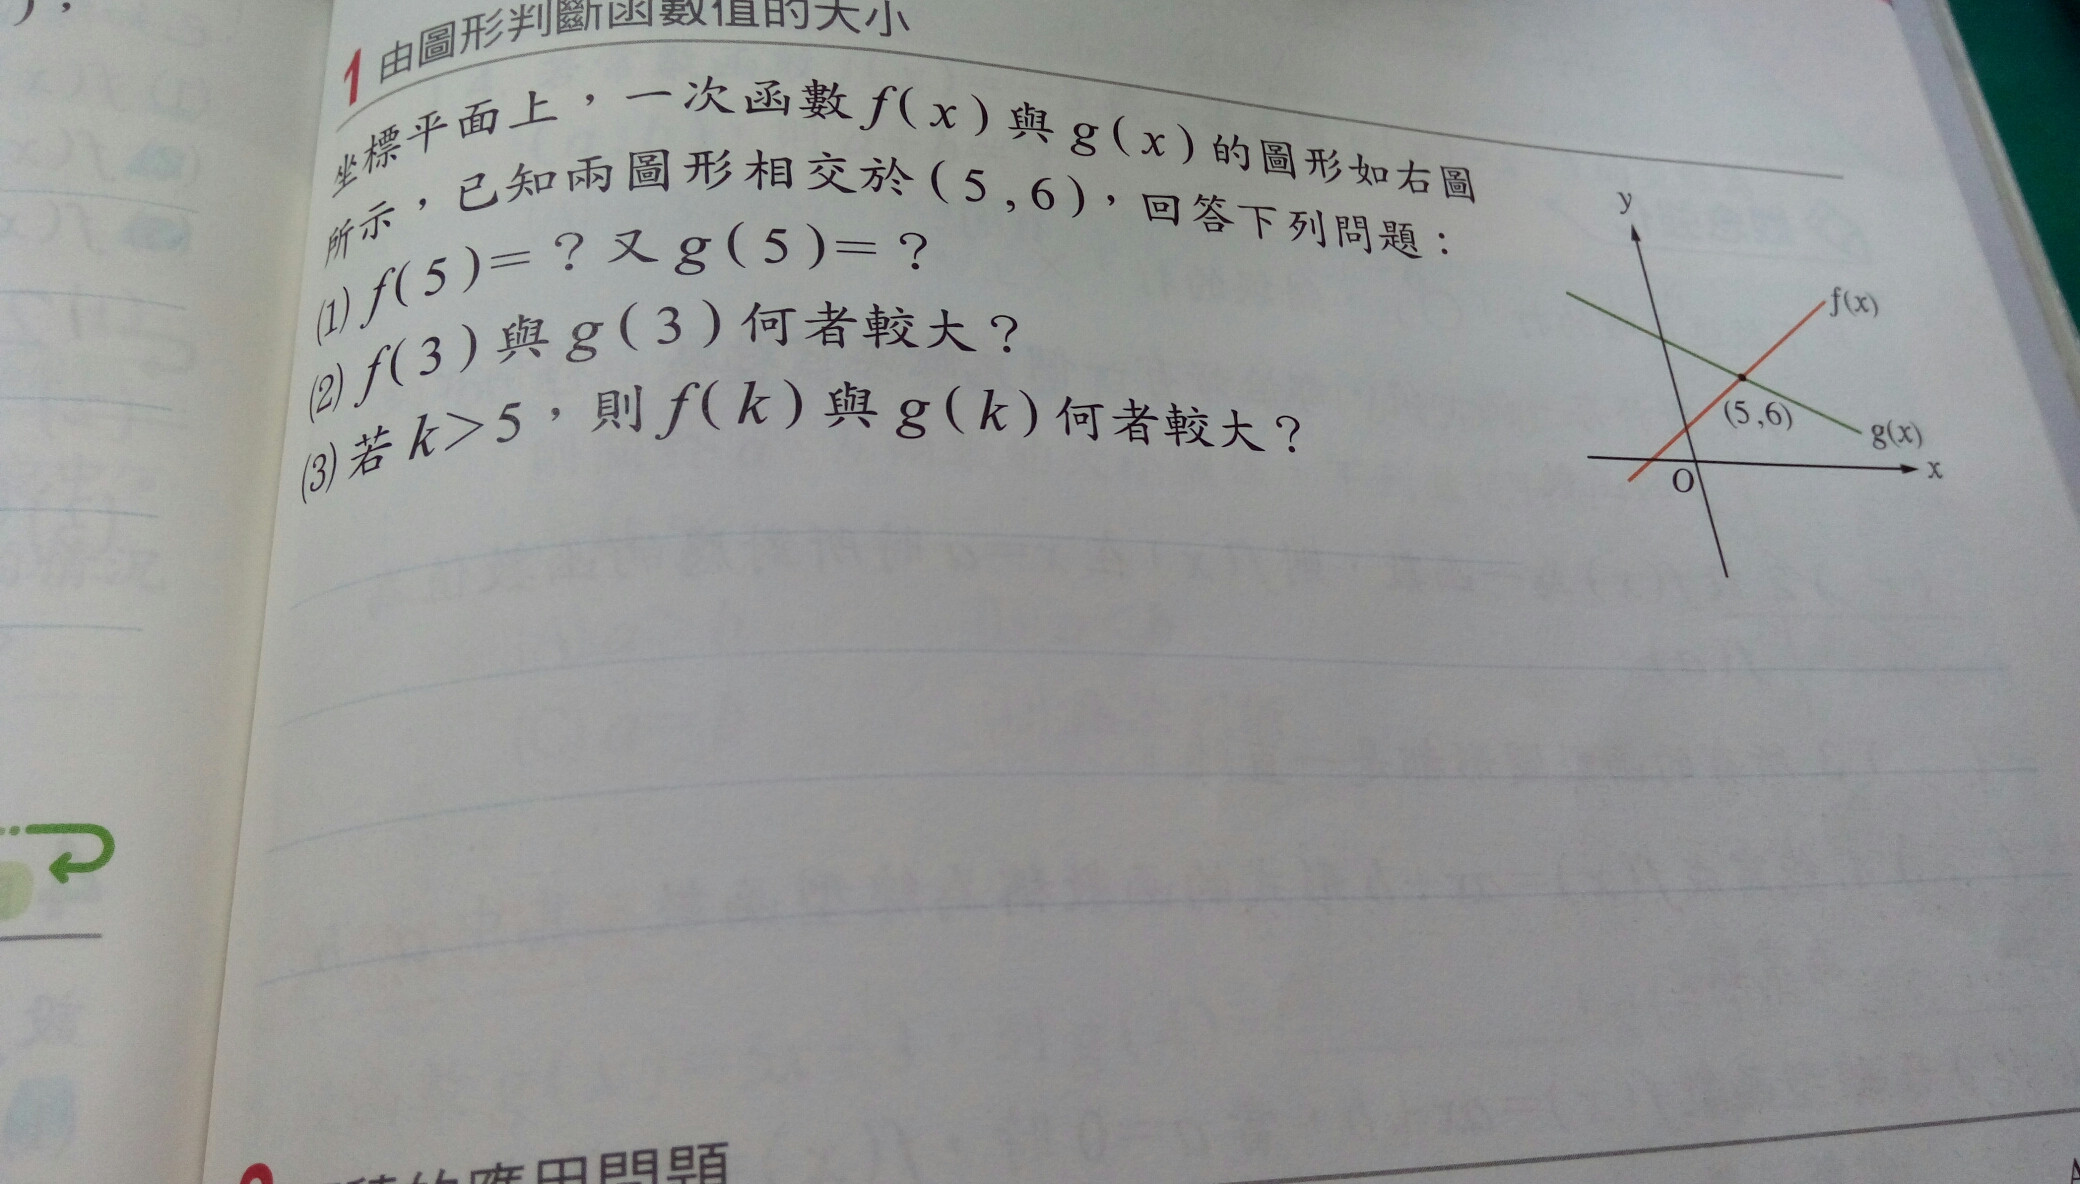 1 由圖形判斷函數值的大小
坐標平面上，一次函數 f(x) 與 g(x) 的圖形如右圖
所示，已知兩圖形相交於(5,6)，回答下列問題：
(1) f(5)=？又 g(5)=？
(2) f(3) 與 g(3) 何者較大？
(3) 若 k>5，則 f(k) 與 g(k) 何者較大？
y
f(x)
(5,6)
g(x)
O
x
的應用問題